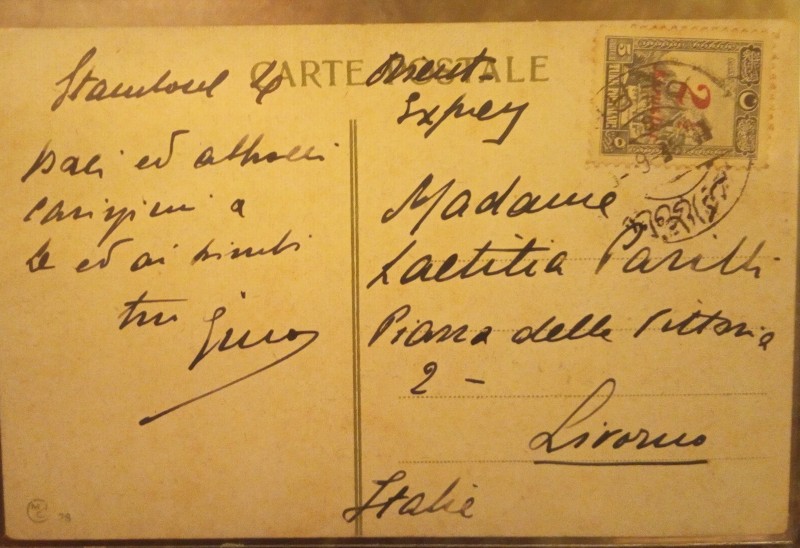 CARTE POSTALE
Stamboul
Baci ed abbracci
carissimi a
te ed ai bimbi
tuo Gino
Orient
Express
Madame
Laetitia Parilli
Piazza della Vittoria
2 -
Livorno
Italie
5
2½
5